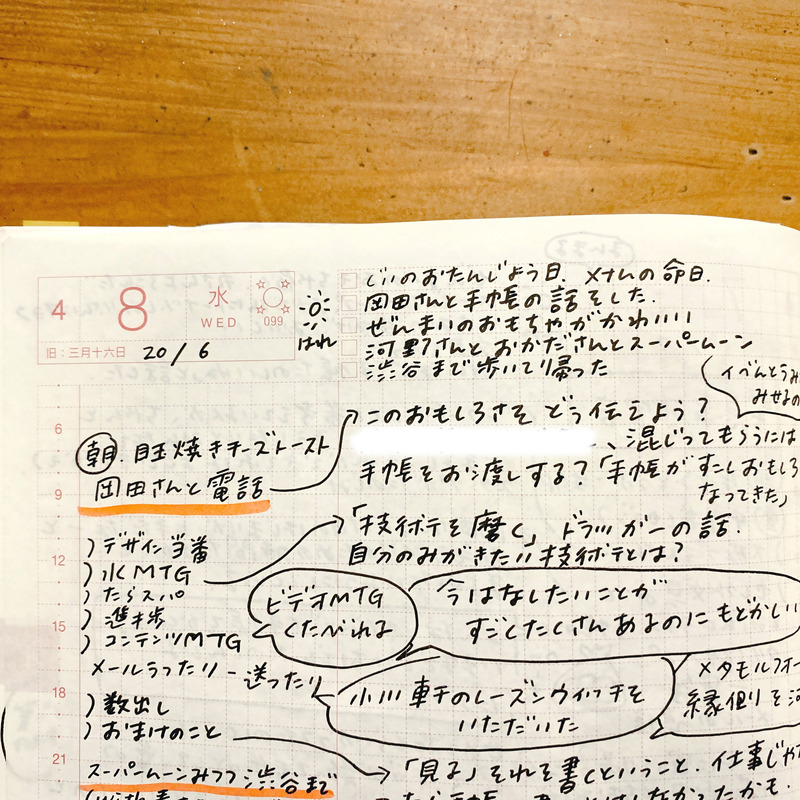 4 8 水 WED 099
旧:三月十六日 20/6
はれ
じいのおたんじょう日、メナムの命日.
岡田さんと手帳の話をした.
ぜんまいのおもちゃがかわいい
河野さんとおかださんとスーパームーン
渋谷まで歩いて帰った
イベントうみ
みせるの
このおもしろさをどう伝えよう?
、混じってもらうには
手帳をお渡しする?「手帳がすこしおもしろ
なってきた」
6
朝.目玉焼きチーズトースト
岡田さんと電話
9
「技術点を磨く」ドラッカーの話.
自分のみがきたい技術点とは?
デザイン当番
12
水MTG
たらスパ
進捗
15
コンテンツMTG
ビデオMTG
くたびれる
今はなしたいことが
すごくたくさんあるのにもどかしい
メールうったり-送ったり
18
数出し
おまけのこと
小川軒のレーズンウィッチを
いただいた
メタモルフォー
縁側を河
21
スーパームーンみつつ渋谷まで
「見る」それを書くということ.仕事じゃ